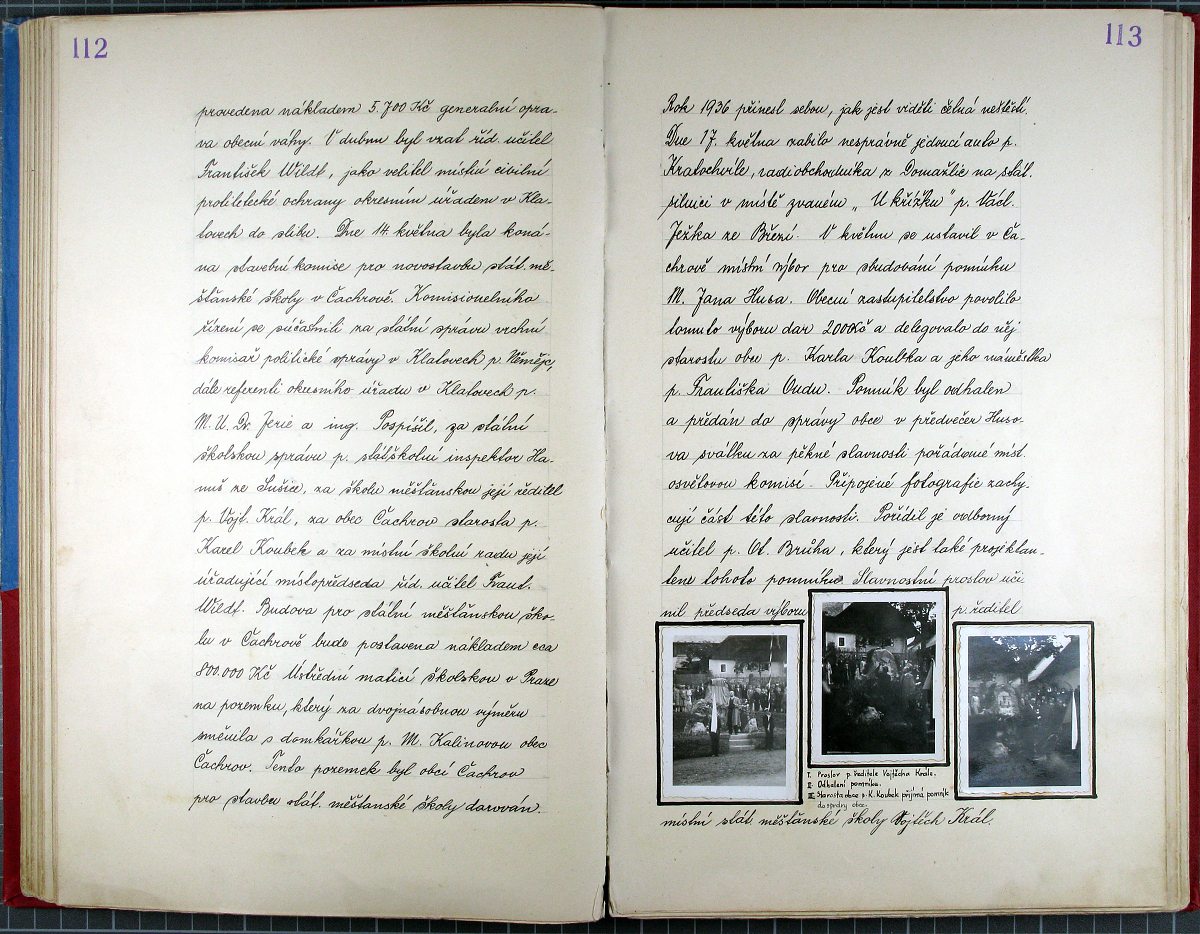 112
provedena nákladem 5.700 Kč generalní opra-
va obecní váhy. V dubnu byl vzat říd. učitel
František Wildt, jako velitel místní civilní
protiletecké ochrany okresním úřadem v Kla-
tovech do slibu. Dne 14. května byla koná-
na stavební komise pro novostavbu stát. mě-
šťanské školy v Čachrově. Komisionelního
řízení se súčastnili za státní správu vrchní
komisař politické správy v Klatovech p. Němějc,
dále referenti okresního úřadu v Klatovech p.
M. U. Dr. Jerie a ing. Pospíšil, za státní
školskou správu p. stát.školní inspektor Ha-
nuš ze Sušice, za školu měšťanskou její ředitel
p. Vojt. Král, za obec Čachrov starosta p.
Karel Koubek a za místní školní radu její
úřadující místopředseda říd. učitel Frant.
Wildt. Budova pro státní měšťanskou ško-
lu v Čachrově bude postavena nákladem cca
800.000 Kč Ústřední maticí školskou v Praze
na pozemku, který za dvojnásobnou výměru
směnila s domkářkou p. M. Kalinovou obec
Čachrov. Tento pozemek byl obcí Čachrov
pro stavbu stát. měšťanské školy darován.
113
Rok 1936 přinesl sebou, jak jest viděti čelná neštěstí.
Dne 17. května zabilo nesprávně jedoucí auto p.
Kratochvíle, radiobchodníka z Domažlic na stát.
silnici v místě zvaném „U křížku" p. Václ.
Ježka ze Březí. V květnu se ustavil v Ča-
chrově místní výbor pro sbudování pomníku
M. Jana Husa. Obecní zastupitelstvo povolilo
tomuto výboru dar 200Kč a delegovalo do něj
starostu obce p. Karla Koubka a jeho náměstka
p. Františka Oudu. Pomník byl odhalen
a předán do správy obce v předvečer Huso-
va svátku za pěkné slavnosti pořádané míst.
osvětovou komisí. Připojené fotografie zachy-
cují část této slavnosti. Pořídil je odborný
učitel p. Ot. Brůha, který jest také projektan-
tem tohoto pomníku. Slavnostní proslov uči
nil předseda výboru p. ředitel
I. Proslov p. ředitele Vojtěcha Krále.
II. Odhalení pomníku.
III. Starosta obce p. K. Koubek přijímá pomník
do správy obce.
místní stát. měšťanské školy Vojtěch Král.